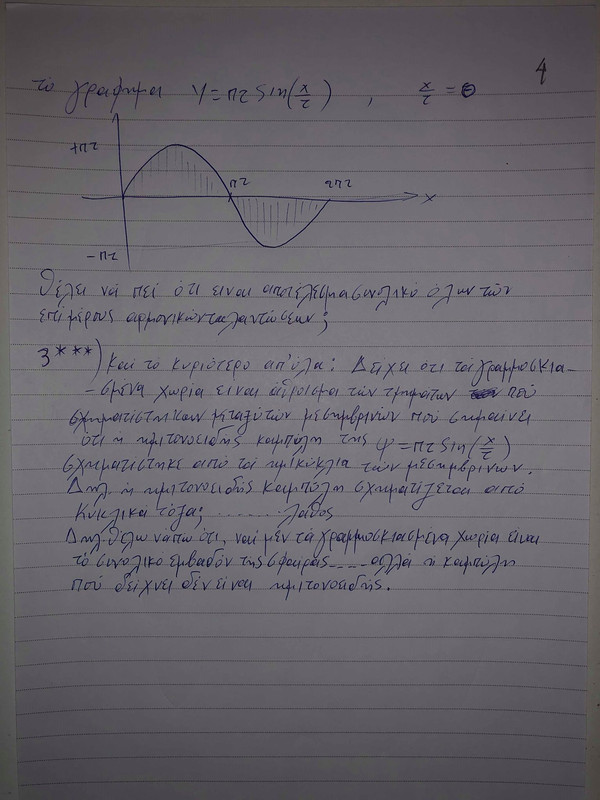 4
τό γράφημα Y = πτ Sin(x/τ) , x/τ = θ
+πτ
πτ 2πτ
x
-πτ
θέλει νά πεί ότι ειναι αποτέλεσμα συνολικό όλων τών
επί μέρους αρμονικών ταλαντώσεων;
3***) Καί τό κυριότερο απ'όλα: Δείχνει ότι τά γραμμοσκια-
-σμένα χωρία ειναι άθροισμα τών τμημάτων πού
σχηματίστηκαν μεταξύ τών μεσημβρινών πού σημαίνει
ότι η ημιτονοειδής καμπύλη της Ψ = πτ Sin(x/τ)
σχηματίστηκε από τά ημικύκλια τών μεσημβρινών.
Δηλ. η ημιτονοειδής καμπύλη σχηματίζεται από
Κυκλικά τόξα; ......... λάθος
Δηλ. θέλω νά πω ότι, ναί μεν τά γραμμοσκιασμένα χωρία είναι
τό συνολικό εμβαδόν της σφαίρας .... αλλά η καμπύλη
πού δείχνει δέν είναι ημιτονοειδής.